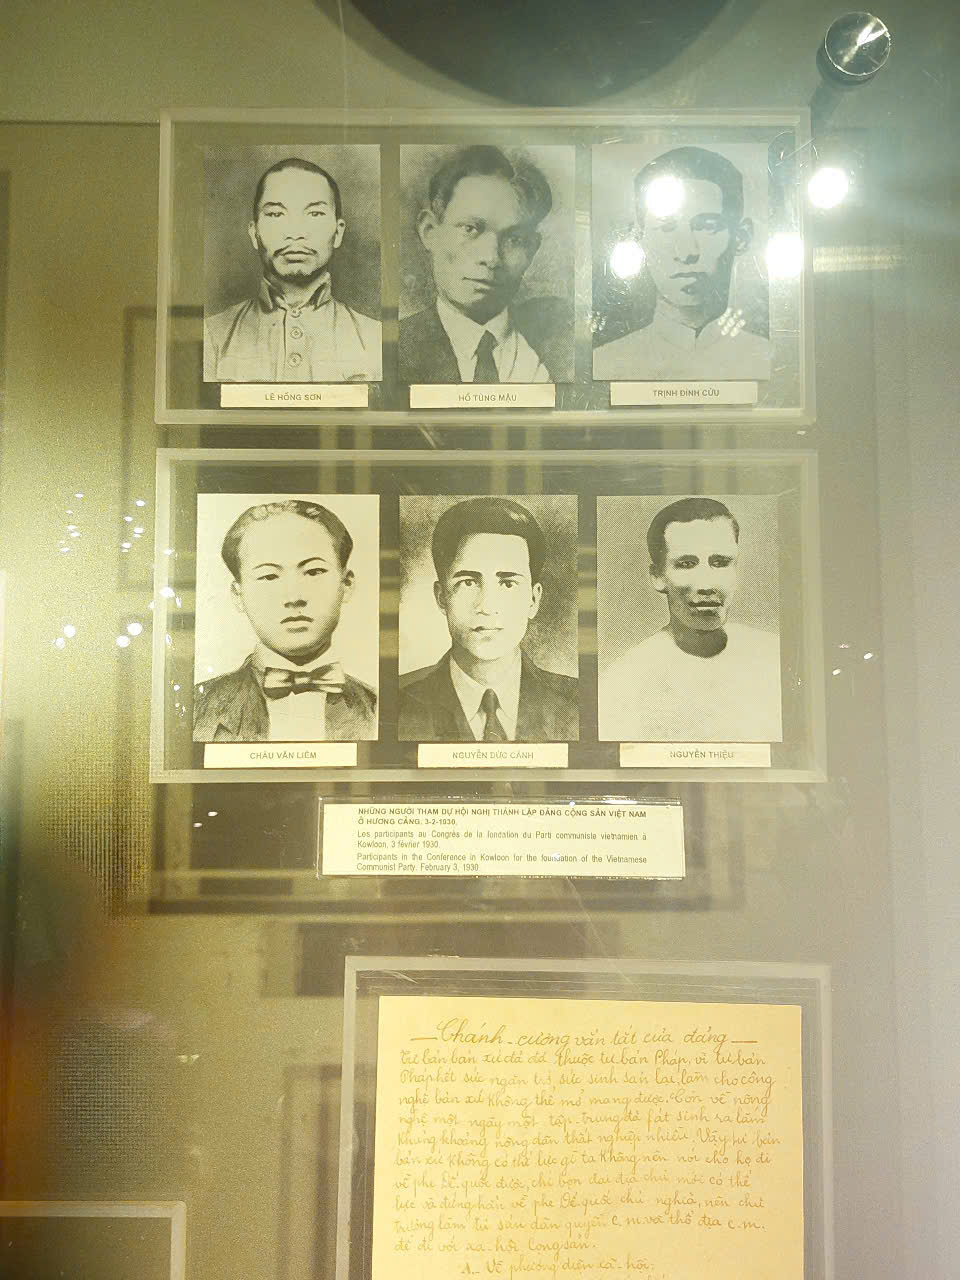 LÊ HỒNG SƠN
HỒ TÙNG MẬU
TRỊNH ĐÌNH CỬU
CHÂU VĂN LIÊM
NGUYỄN ĐỨC CẢNH
NGUYỄN THIỆU
NHỮNG NGƯỜI THAM DỰ HỘI NGHỊ THÀNH LẬP ĐẢNG CỘNG SẢN VIỆT NAM
Ở HƯƠNG CẢNG. 3-2-1930.
Les participants au Congrès de la fondation du Parti communiste vietnamien à
Kowloon, 3 février 1930.
Participants in the Conference in Kowloon for the foundation of the Vietnamese
Communist Party. February 3, 1930
Chánh-cương vắn tắt của đảng
Tư bản bản xứ đã đó thuộc tư bản Pháp, vì tư bản
Pháp hết sức ngăn trở sức sinh sản lại, làm cho công
nghệ bản xứ không thể mở mang được. Còn về nông
nghệ một ngày một tập-trung đã phát sinh ra lắm
khủng khoảng nông dân thất nghiệp nhiều. Vậy tư bản
bản xứ không có thế lực gì ta không nên nói cho họ đi
về phe Đế quốc được, chỉ bọn đại địa chủ mới có thế
lực và đứng hẳn về phe Đế quốc chủ-nghĩa, nên chủ
trương làm tư sản dân quyền c.m. và thổ địa c.m.
để đi với xã-hội Cộng sản.
A._ Về phương diện xã-hội: